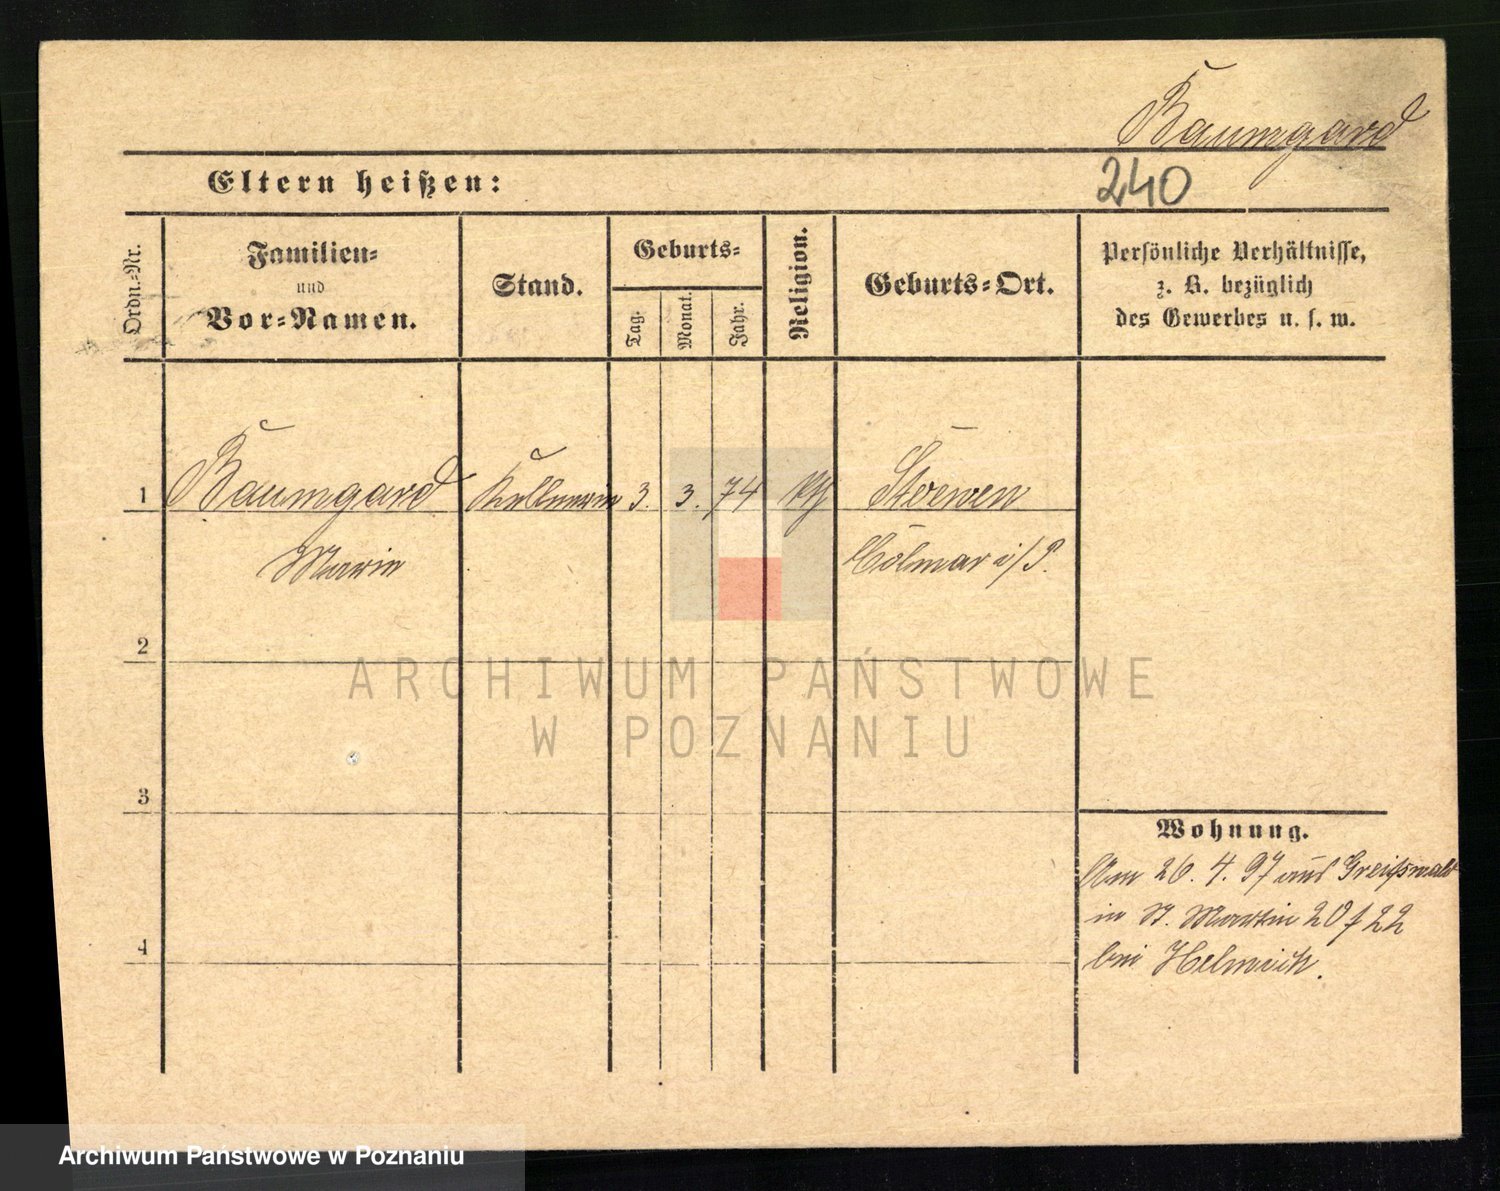 Baumgard
240
Eltern heißen:
Ordn.-Nr.
Familien-
und
Vor-Namen.
Stand.
Geburts-
Tag.
Monat.
Jahr.
Religion.
Geburts-Ort.
Persönliche Verhältnisse,
z. B. bezüglich
des Gewerbes u. s. w.
1 Baumgard Kellnerin 3. 3. 74 Stoewen
Marie Colmar i/P.
2
ARCHIWUM PAŃSTWOWE
W POZNANIU
3
Wohnung.
Am 26. 4. 97 aus Greifswald
in St. Martin 20/22
bei Helmich.
4
Archiwum Państwowe w Poznaniu